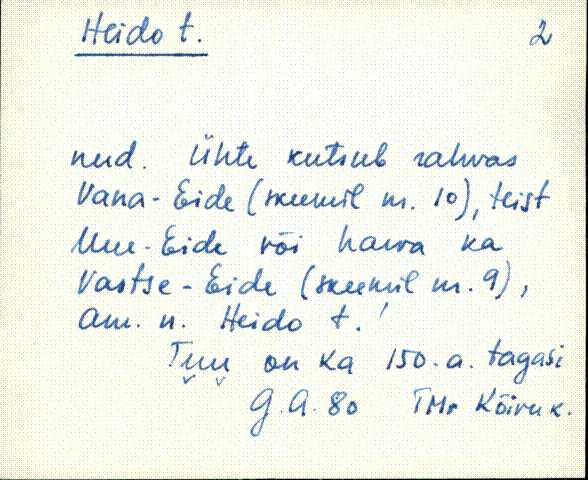 Heido t. 2
nud. Ühte kutsub rahvas
Vana-Eide (skeemil nr. 10), teist
Uue-Eide või harva ka
Vastse-Eide (skeemil nr. 9),
am. n. Heido t.!
Tuu on ka 150. a. tagasi
G.A. 80 TMr Kõiru k.